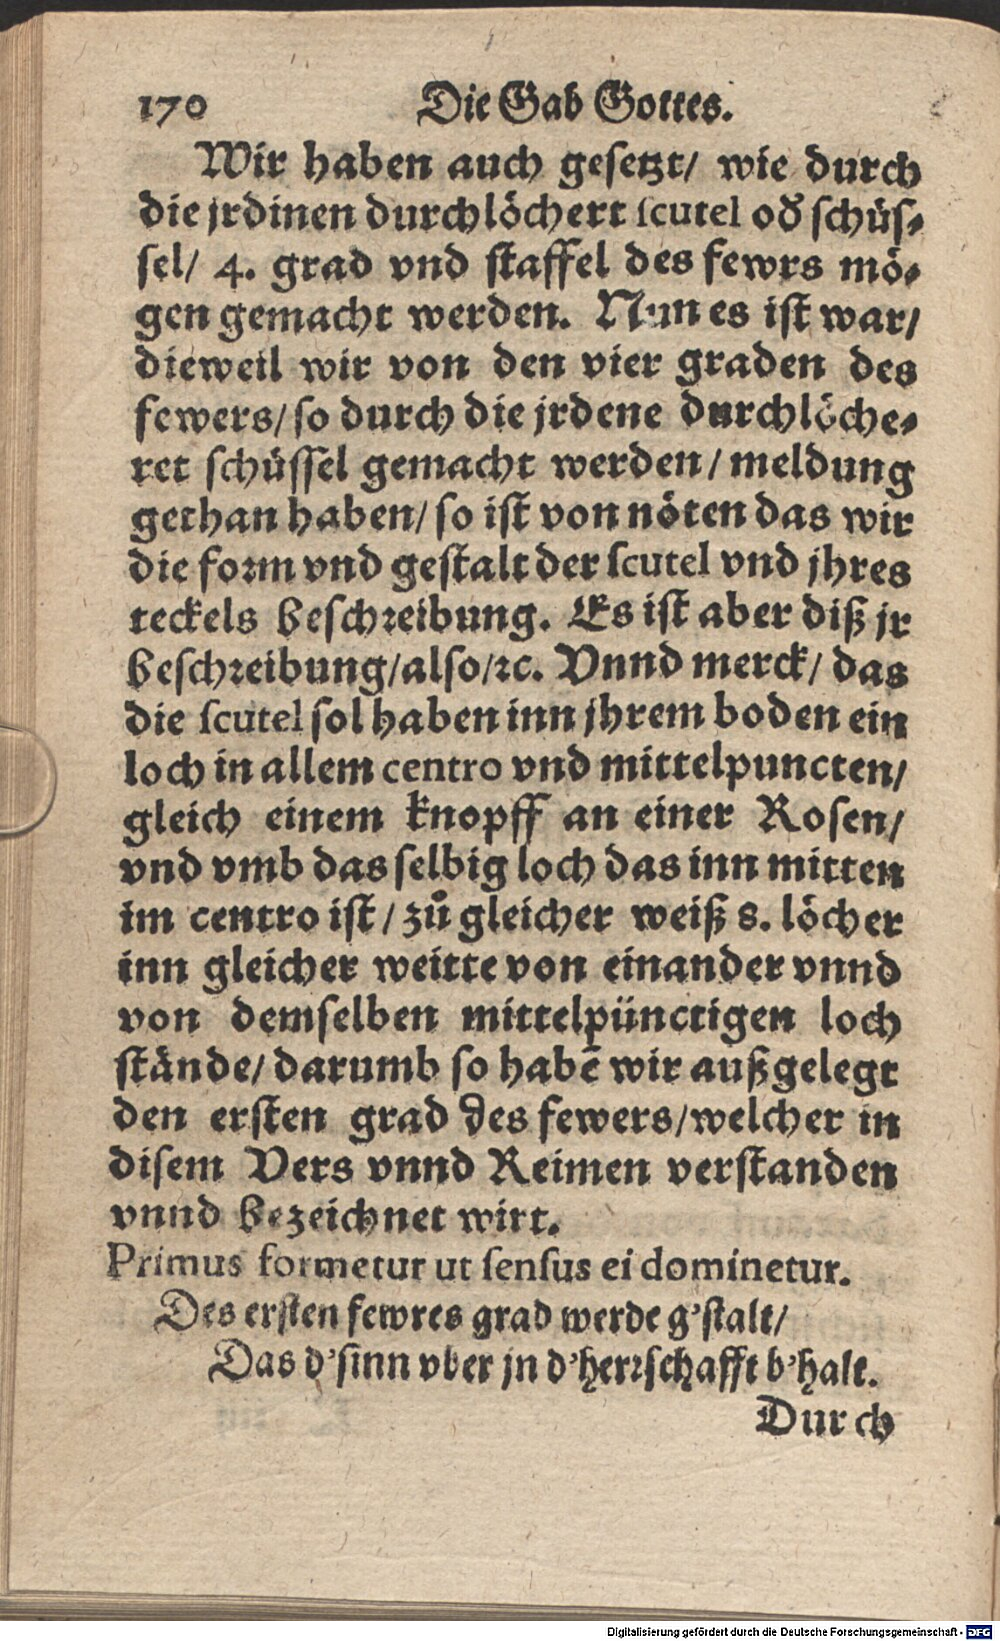 170 Die Gab Gottes.
Wir haben auch gesetzt/ wie durch
die jrdinen durchlöchert scutel od̃ schüs⸗
sel/ 4. grad vnd staffel des fewrs mö⸗
gen gemacht werden. Nun es ist war/
dieweil wir von den vier graden des
fewers/ so durch die jrdene durchlöche⸗
ret schüssel gemacht werden/ meldung
gethan haben/ so ist von nöten das wir
die form vnd gestalt der scutel vnd jhres
teckels beschreibung. Es ist aber diß jr
beschreibung/also/ꝛc. Vnnd merck/ das
die scutel sol haben inn jhrem boden ein
loch in allem centro vnd mittelpuncten/
gleich einem knopff an einer Rosen/
vnd vmb das selbig loch das inn mitten
im centro ist/ zů gleicher weiß 8. löcher
inn gleicher weitte von einander vnnd
von demselben mittelpünctigen loch
stände/ darumb so habē wir außgelegt
den ersten grad des fewers/welcher in
disem Vers vnnd Reimen verstanden
vnnd bezeichnet wirt.
Primus formetur ut sensus ei dominetur.
Des ersten fewres grad werde g'stalt/
Das d'sinn vber jn d'herrschafft b'halt.
Durch
Digitalisierung gefördert durch die Deutsche Forschungsgemeinschaft - DFG